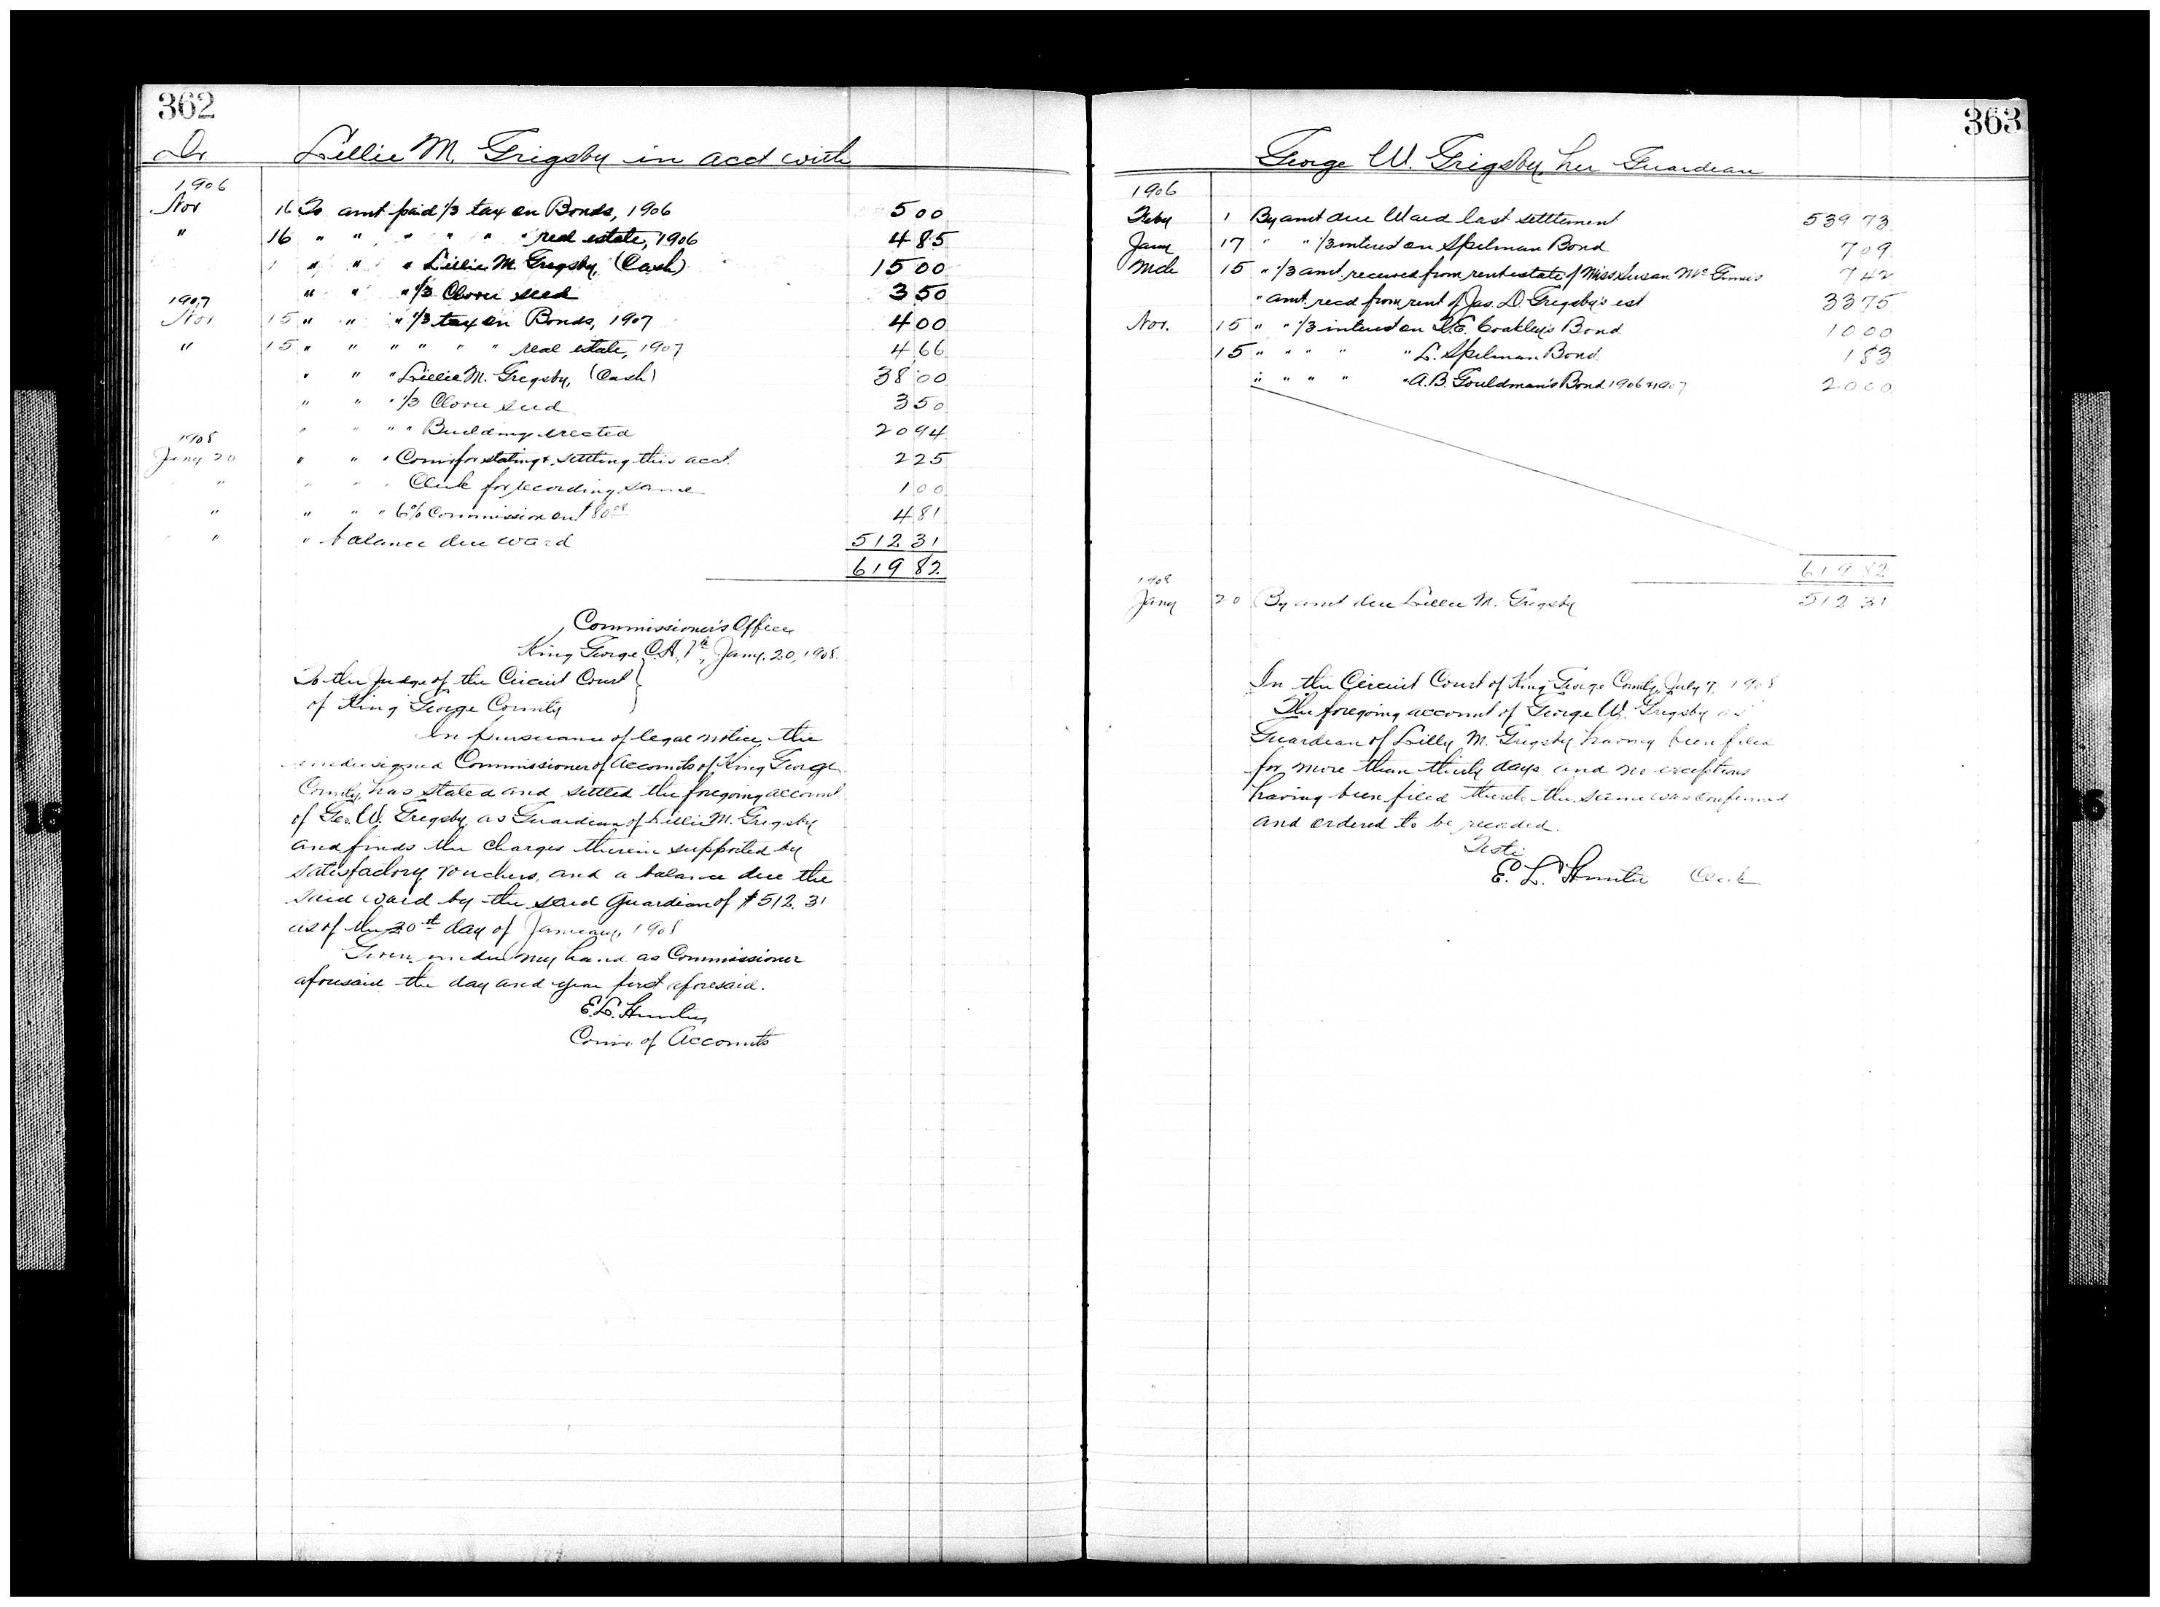 362
Dr Lillie M. Grigsby in acct with
1906
Nov 16 To amt paid 1/3 tax on Bonds, 1906 5 00
" 16 " " " " " " real estate, 1906 4 85
1 " " " Lillie M. Grigsby (Cash) 15 00
" " " 1/3 Clover seed 3 50
1907
Nov 15 " " " 1/3 tax on Bonds, 1907 4 00
" 15 " " " " " " real estate, 1907 4 66
" " " Lillie M. Grigsby, (Cash) 38 00
" " " 1/3 Clover seed 3 50
" " " " Building erected 20 94
1908
Jany 20 " " " Comr for stating & settling this acct. 2 25
" " " " Clerk for recording same 1 00
" " " " 6% Commission on $80 08 4 81
" " balance due ward 512 31
619 82
Commissioner's Office,
King George C.H., Va., Jany. 20, 1908.
To the Judge of the Circuit Court
of King George County
In pursuance of legal notice, the
undersigned Commissioner of Accounts of King George
County, has stated and settled the foregoing account
of Geo. W. Grigsby, as Guardian of Lillie M. Grigsby
and finds the charges therein supported by
satisfactory vouchers, and a balance due the
said ward by the said Guardian of $512.31
as of the 20th day of January, 1908
Given under my hand as Commissioner
aforesaid the day and year first aforesaid.
E. L. Hunter,
Comr. of Accounts
363
George W. Grigsby, her Guardian
1906
Feby 1 By amt due Ward last settlement 539 73
Jany 17 " " 1/3 interest on Spilman Bond 7 09
Mch 15 " 1/3 amt received from rent estate of Miss Susan 7 42
" amt. recd from rent of Jas. D. Grigsby's est 33 75
Nov. 15 " " 1/3 interest on Coakley's Bond 10 00
15 " " " " " L. Spilman Bond 1 83
" " " " " A. B. Gouldman's Bond 1906 & 1907 20 00
619 82
1908
Jany 20 By amt due Lillie M. Grigsby 512 31
In the Circuit Court of King George County, July 7, 1908
The foregoing account of George W. Grigsby as
Guardian of Lilly M. Grigsby having been filed
for more than thirty days and no exceptions
having been filed thereto the same was confirmed
and ordered to be recorded.
Teste
E. L. Hunter Clerk